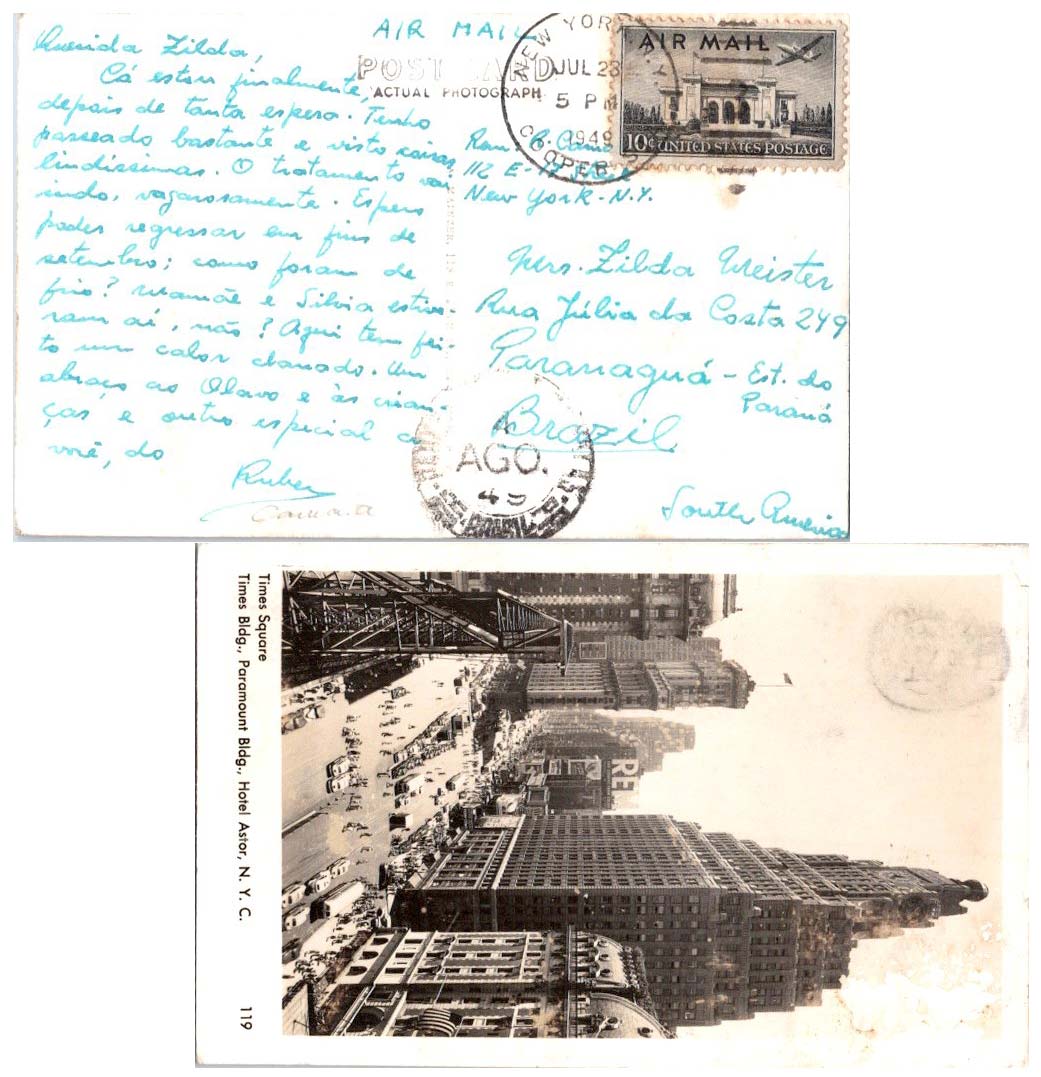 Querida Zilda,
Cá estou finalmente,
depois de tanta espera. Tenho
passeado bastante e visto coisas
lindíssimas. O tratamento vai
indo, vagarosamente. Espero
poder regressar em fins de
setembro; como foram de
frio? Mamãe e Silvia estive-
ram aí, não? Aqui tem fei-
to um calor danado. Um
abraço ao Olavo e às crian-
ças e outro especial a
você, do
Ruben
AIR MAIL
POST CARD
ACTUAL PHOTOGRAPH
NEW YORK, N.Y.
JUL 28
5 PM
1949
COOPER
AIR MAIL
10¢ UNITED STATES POSTAGE
112 E-
New York - N.Y.
Mrs. Zilda Meister
Rua Júlia da Costa 249
Paranaguá - Est. do
Paraná
Brazil
South America
AGO.
49
BRASIL
Times Square
Times Bldg., Paramount Bldg., Hotel Astor, N. Y. C.
119